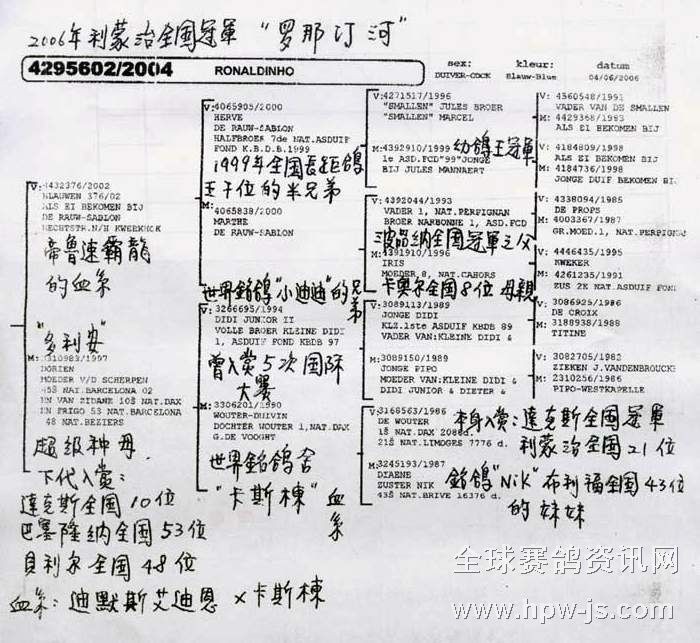 2006年利蒙治全国冠軍 “罗那汀河”
4295602/2004 RONALDINHO
sex: kleur: datum
DUIVER-COCK Blauw-Blue 04/06/2006
V: 4432376/2002
BLAUWEN 376/02
ALS EI BEKOMEN BIJ
DE RAUW-SABLON
RECHTSTR.N/H KWEEKHOK
帝鲁速霸龍
的血系
“多利安”
M: 3310983/1997
DORIEN
MOEDER V/D SCHERPEN
45$ NAT.BARCELONA 02
EN VAN ZIDANE 10$ NAT.DAX
EN FRIGO 53 NAT.BARCELONA
48 NAT.BEZIERS
超级种母
下代入赏:
達克斯全国10位
巴塞隆纳全国53位
貝利尔全国48位
血系: 迪默斯艾迪恩 x 卡斯棟
V: 4065905/2000
HERVE
DE RAUW-SABLON
HALFBROER 7de NAT.ASDUIF
FOND K.B.D.B.1999
1999年全国長距鴿
王7位的半兄弟
M: 4065838/2000
MARTHE
DE RAUW-SABLON
世界銘鴿“小迪迪”的兄弟
V: 3266695/1994
DIDI JUNIOR II
VOLLE BROER KLEINE DIDI
1, ASDUIF FOND KBDB 97
曾入赏5次国际
大赛
M: 3306201/1990
WOUTER-DUIVIN
DOCHTER WOUTER 1,NAT.DAX
G.DE VOOGHT
世界銘鴿舍
“卡斯棟” 血系
V: 4271517/1996
"SMALLEN" JULES BROER
"SMALLEN" MARCEL
M: 4392910/1999
1e ASD.FCD"99"JONGE
BIJ JULES MANNAERT
幼鴿王冠軍
V: 4392044/1993
VADER 1, NAT.PERPIGNAN
BROER NARBONNE 1, ASD.FCD
波品纳全国冠軍之父
M: 4391910/1996
IRIS
MOEDER 8, NAT.CAHORS
卡奥尔全国8位 母親
V: 3089113/1989
JONGE DIDI
KLZ.1ste ASDUIF KBDB 89
VADER VAN:KLEINE DIDI &
M: 3089150/1989
JONGE PIPO
MOEDER VAN:KLEINE DIDI &
DIDI JUNIOR & DIETER &
V: 3168563/1986
DE WOUTER
1$ NAT.DAX 2086d.
21$ NAT.LIMOGES 7776 d.
本身入赏: 達克斯全国冠軍
利蒙治全国21位
M: 3245193/1987
DIAENE
ZUSTER NIK
43$ NAT.BRIVE 16376 d.
銘鴿“NiK”布利福全国43位
的妹妹
V: 4360548/1991
VADER VAN DE SMALLEN
M: 4429368/1983
ALS EI BEKOMEN BIJ
V: 4184809/1998
ALS EI BEKOMEN BIJ
M: 4184736/1998
JONGE DUIF BEKOMEN BIJ
V: 4338094/1985
DE PROPS
M: 4003367/1987
GR.MOED.1, NAT.PERPIGNAN
V: 4446435/1995
KWEKER
M: 4261235/1991
ZUS 2E NAT.ASDUIF FOND
V: 3086925/1986
DE CROIX
M: 3188938/1988
TITINE
V: 3082705/1982
ZIEKEN J.VANDENBROUCKE
M: 2310256/1986
PIPO-WESTKAPELLE
全球赛鸽资讯网
www.hpw-js.com